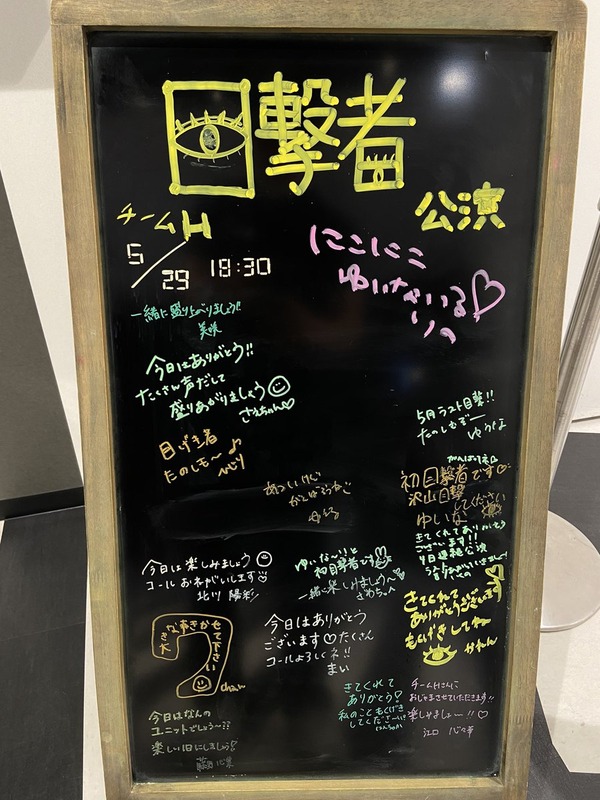 目撃者
公演
チームH
5/29 18:30
にこにこ
ゆいないる♡
りの
一緒に盛り上がりましょう!!
美咲
今日はありがとう!!
たくさん声だして
盛りあがりましょう
さえちゃん♡
5月ラスト目撃!!
たのしもぞー
ゆうな
目げき者
たのしも〜♪
ひじり
がんばりネ
初目撃者です♡
沢山目撃
してください
ゆいな
あついけど
がんばろうね
きてくれてありがとう
ございます!!
4日連続公演
今日は楽しみましょう
コールおねがいします
北川 陽彩
ゆいな〜いと
初目撃者です
一緒に楽しみましょう〜
さわちゃん
きてくれて
ありがとうございます
もくげきしてね
かれん
大きな声きかせて下さい
chan
今日はありがとう
ございます♡たくさん
コールよろしくネ!!
まい
きてくれて
ありがとう♡
私のこともくげき
してくださーい!!
チームHさんに
おじゃまさせていただきます!!
楽しみましょー!!♡
江口 心々華
今日はなんの
ユニットでしょう〜??
楽しい日にしましょう!